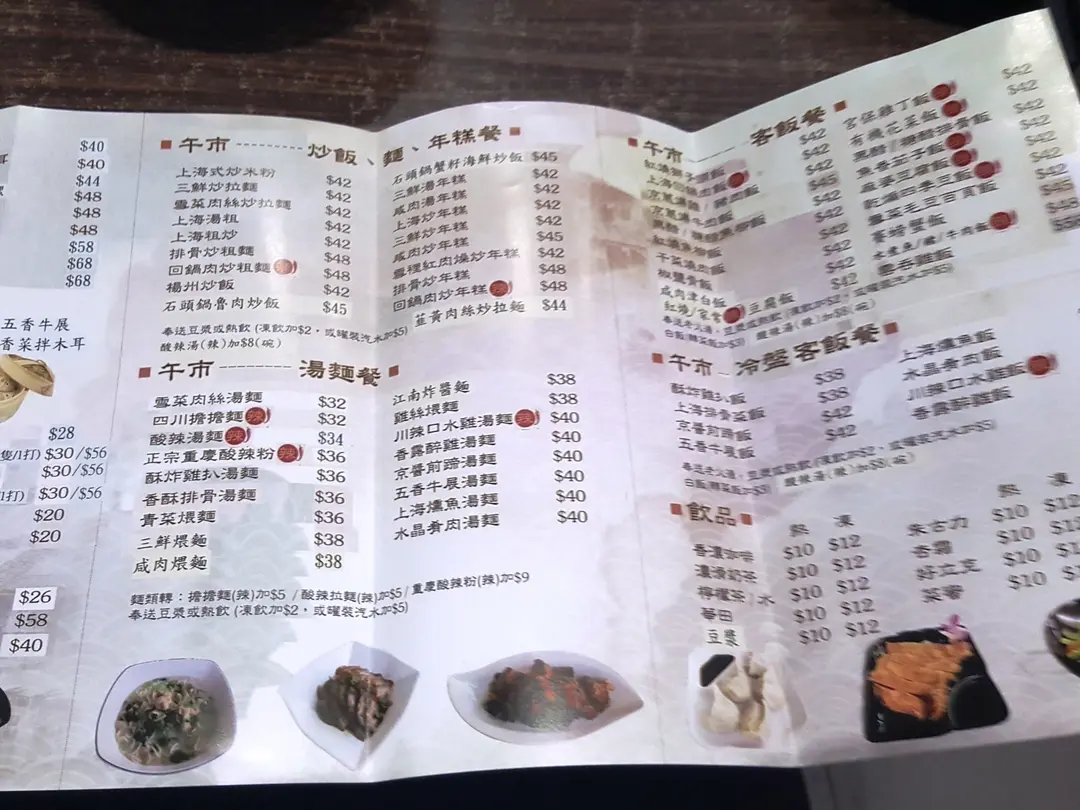 $40
$40
$44
$48
$48
$48
$58
$68
$68
五香牛展
香菜拌木耳
$28
隻/1打) $30/$56
$30/$56
1打) $30/$56
$20
$20
$26
$58
$40
午市 -------- 炒飯、麵、年糕餐
上海式炒米粉 $42
三鮮炒拉麵 $42
雪菜肉絲炒拉麵 $42
上海湯粗 $42
上海粗炒 $42
排骨炒粗麵 $48
回鍋肉炒粗麵 辣 $48
楊州炒飯 $42
石頭鍋魯肉炒飯 $45
石頭鍋蟹籽海鮮炒飯 $45
三鮮湯年糕 $42
咸肉湯年糕 $42
上海炒年糕 $42
三鮮炒年糕 $42
咸肉炒年糕 $45
雪裡紅肉燥炒年糕 $42
排骨炒年糕 $48
回鍋肉炒年糕 辣 $48
韮黃肉絲炒拉麵 $44
奉送豆漿或熱飲 (凍飲加$2，或罐裝汽水加$5)
酸辣湯(辣)加$8(碗)
午市 -------- 湯麵餐
雪菜肉絲湯麵 $32
四川擔擔麵 辣 $32
酸辣湯麵 辣 $34
正宗重慶酸辣粉 辣 $36
酥炸雞扒湯麵 $36
香酥排骨湯麵 $36
青菜煨麵 $36
三鮮煨麵 $38
咸肉煨麵 $38
江南炸醬麵 $38
雞絲煨麵 $38
川辣口水雞湯麵 辣 $40
香露醉雞湯麵 $40
京醬煎蹄湯麵 $40
五香牛展湯麵 $40
上海燻魚湯麵 $40
水晶肴肉湯麵 $40
麵類轉：擔擔麵(辣)加$5 / 酸辣拉麵(辣)加$5 / 重慶酸辣粉(辣)加$9
奉送豆漿或熱飲 (凍飲加$2，或罐裝汽水加$5)
午市 ------ 客飯餐
$42
$42
$45
$42
$42
$42
$42
$42
宮保雞丁飯 辣 $42
有機花菜飯 辣 $42
黑醋/糖醋排骨飯 $42
魚香茄子飯 辣 $42
麻婆豆腐飯 辣 $42
乾煸四季豆飯 辣 $42
雪菜毛豆百頁飯
賽螃蟹飯
水煮魚/豬/牛肉飯 辣 $48
午市 -- 冷盤客飯餐
酥炸雞扒飯 $38
上海排骨菜飯 $38
京醬煎蹄飯 $42
五香牛展飯 $42
上海燻魚飯
水晶肴肉飯
川辣口水雞飯 辣
香露醉雞飯
酸辣湯(辣)加$8(碗)
飲品
熱 凍
香濃咖啡 $10 $12
濃滑奶茶 $10 $12
檸檬茶/水 $10 $12
華田 $10 $12
豆漿 $10 $12
熱 凍
朱古力 $10 $12
杏霜 $10 $12
好立克 $10 $12
菜蜜 $10 $12